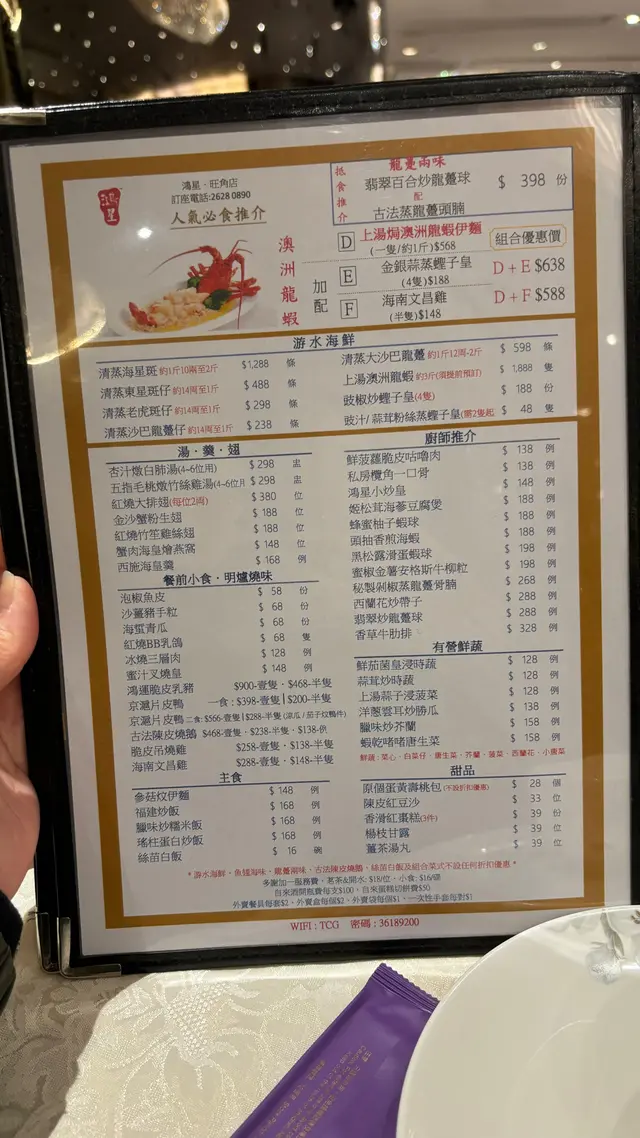 鴻星
鴻星．旺角店
訂座電話:2628 0890
人氣必食推介
抵食推介
龍躉兩味
翡翠百合炒龍躉球
配
古法蒸龍躉頭腩
$ 398 份
澳洲龍蝦
加配
D 上湯焗澳洲龍蝦伊麵
(一隻/約1斤)$568
組合優惠價
E 金銀蒜蒸蟶子皇
(4隻)$188
D + E $638
F 海南文昌雞
(半隻)$148
D + F $588
游水海鮮
清蒸海星斑 約1斤10兩至2斤 $1,288 條
清蒸東星斑仔 約14兩至1斤 $ 488 條
清蒸老虎斑仔 約14兩至1斤 $ 298 條
清蒸沙巴龍躉仔 約14兩至1斤 $ 238 條
清蒸大沙巴龍躉 約1斤12兩-2斤 $ 598 條
上湯澳洲龍蝦 約3斤(須提前預訂) $ 1,888 隻
豉椒炒蟶子皇(4隻) $ 188 份
豉汁/ 蒜茸粉絲蒸蟶子皇(需2隻起 $ 48 隻
湯．羹．翅
杏汁燉白肺湯(4~6位用) $ 298 盅
五指毛桃燉竹絲雞湯(4~6位用 $ 298 盅
紅燒大排翅(每位2両) $ 380 位
金沙蟹粉生翅 $ 188 位
紅燒竹笙雞絲翅 $ 188 位
蟹肉海皇燴燕窩 $ 148 位
西施海皇羹 $ 168 例
餐前小食．明爐燒味
泡椒魚皮 $ 58 份
沙薑豬手粒 $ 68 份
海蜇青瓜 $ 68 份
紅燒BB乳鴿 $ 68 隻
冰燒三層肉 $ 128 例
蜜汁叉燒皇 $ 148 例
鴻運脆皮乳豬 $900-壹隻．$468-半隻
京滬片皮鴨 一食 : $398-壹隻 | $200-半隻
京滬片皮鴨 二食: $566-壹隻 | $288-半隻 (涼瓜 / 茄子炆鴨件)
古法陳皮燒鵝 $468-壹隻．$238-半隻．$138-例
脆皮吊燒雞 $258-壹隻．$138-半隻
海南文昌雞 $288-壹隻．$148-半隻
主食
參菇炆伊麵 $ 148 例
福建炒飯 $ 168 例
臘味炒糯米飯 $ 168 例
瑤柱蛋白炒飯 $ 168 例
絲苗白飯 $ 16 碗
廚師推介
鮮菠蘿脆皮咕嚕肉 $ 138 例
私房欖角一口骨 $ 138 例
鴻星小炒皇 $ 148 例
姬松茸海參豆腐煲 $ 188 例
蜂蜜柚子蝦球 $ 188 例
頭抽香煎海蝦 $ 188 例
黑松露滑蛋蝦球 $ 198 例
蜜椒金薯安格斯牛柳粒 $ 198 例
秘製剁椒蒸龍躉骨腩 $ 268 例
西蘭花炒帶子 $ 288 例
翡翠炒龍躉球 $ 288 例
香草牛肋排 $ 328 例
有營鮮蔬
鮮茄菌皇浸時蔬 $ 128 例
蒜茸炒時蔬 $ 128 例
上湯蒜子浸菠菜 $ 128 例
洋蔥雲耳炒勝瓜 $ 138 例
臘味炒芥蘭 $ 158 例
蝦乾啫啫唐生菜 $ 158 例
鮮蔬 : 菜心．白菜仔．唐生菜．芥蘭．菠菜．西蘭花．小唐菜
甜品
原個蛋黃壽桃包(不設折扣優惠) $ 28 個
陳皮紅豆沙 $ 33 位
香滑紅棗糕(3件) $ 39 份
楊枝甘露 $ 39 位
薑茶湯丸 $ 39 位
* 游水海鮮．魚鰾海味．龍躉兩味．古法陳皮燒鵝．絲苗白飯及組合菜式不設任何折扣優惠 *
多謝加一服務費．茗茶&開水: $18/位．小食: $16/碟
自來酒開瓶費每支$100．自來蛋糕切餅費$50
外賣餐具每套$2．外賣盒每個$2．外賣袋每個$1．一次性手套每對$1
WIFI : TCG 密碼 : 36189200